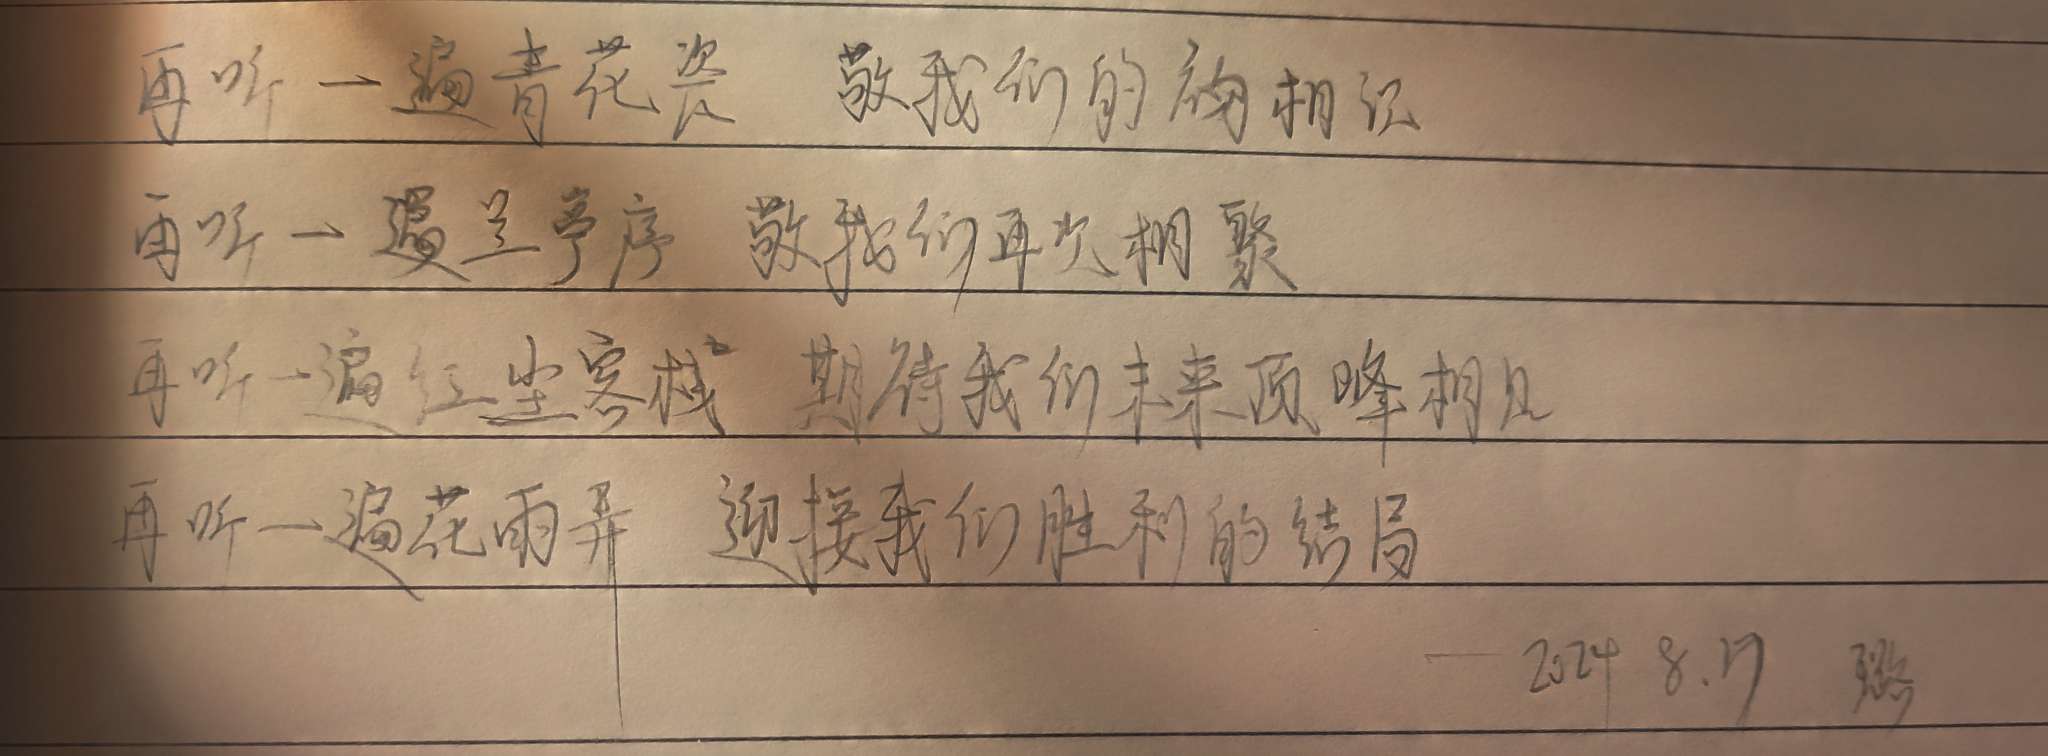 再听一遍青花瓷 敬我们的初相识
再听一遍兰亭序 敬我们再次相聚
再听一遍红尘客栈 期待我们未来顶峰相见
再听一遍花雨弄 迎接我们胜利的结局
— 2024 8.17